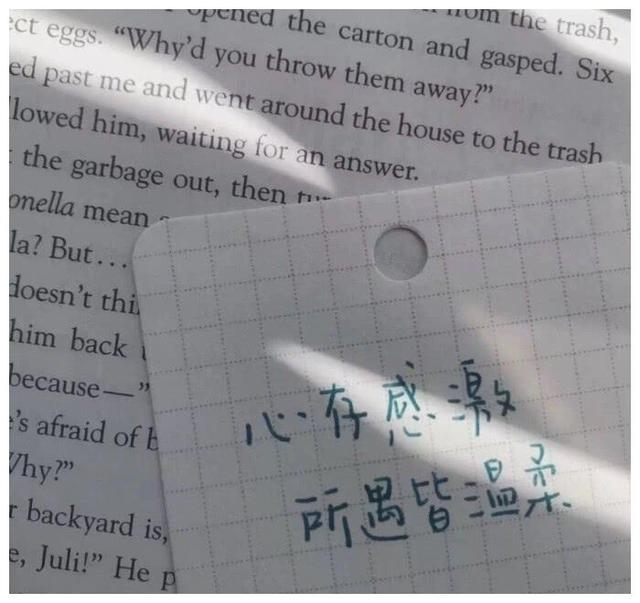 from the trash,
opened the carton and gasped. Six
ect eggs. “Why’d you throw them away?”
ed past me and went around the house to the trash
lowed him, waiting for an answer.
the garbage out, then
onella mean
la? But...
doesn’t thi
him back
because—”
’s afraid of b
Why?”
r backyard is,
e, Juli!” He p
心存感激
所遇皆温柔